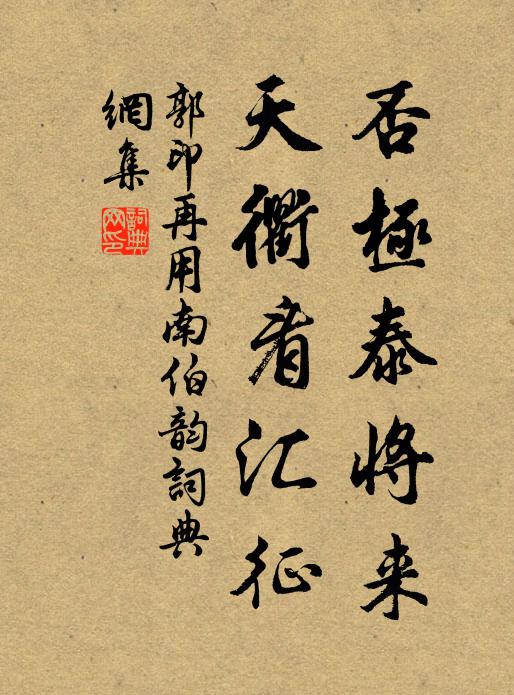 否極泰將来
天衢看汇征
郭印再用南伯韵詞典
網集
詞典網印